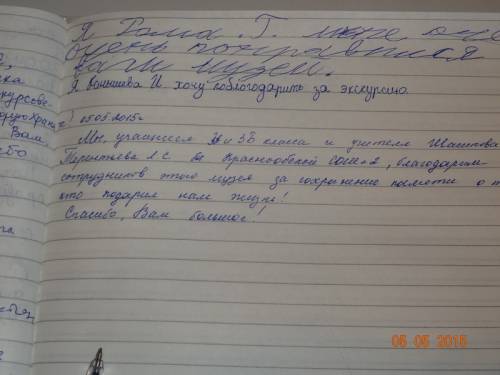 Я Рома. Г. мне оче
очень понравился
ваш музей.
Я Конышева И хочу поблагодарить за экскурсию.
05.05.2015г
Мы, учащиеся 3 и 3Б класса и учителя
Терентьева Л.С. Краснообской СОШ 2, благодарим
сотрудников этого музея за сохранение памяти о т
кто подарил нам жизнь!
Спасибо, Вам большое!
курсове-
Вам,
бо
05 05 2015